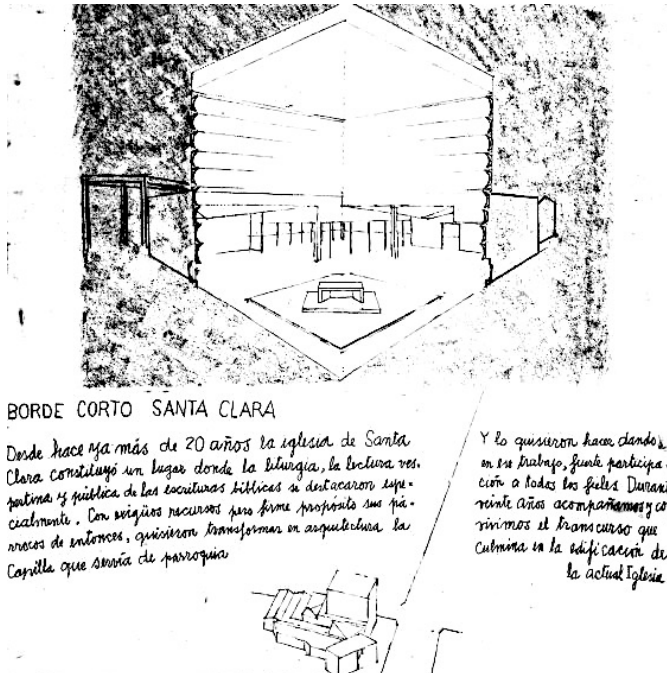 BORDE CORTO SANTA CLARA
Desde hace ya más de 20 años la iglesia de Santa
Clara constituyó un lugar donde la liturgia, la lectura ves-
pertina y pública de las escrituras bíblicas se destacaron espe-
cialmente. Con exigüos recursos pero firme propósito sus pá-
rrocos de entonces, quisieron transformar en arquitectura la
Capilla que servía de parroquia
Y lo quisieron hacer dando
en ese trabajo, fuerte participa
ción a todos los fieles Durant
veinte años acompañamos y co
vivimos el transcurso que
culmina en la edificación de
la actual Iglesia